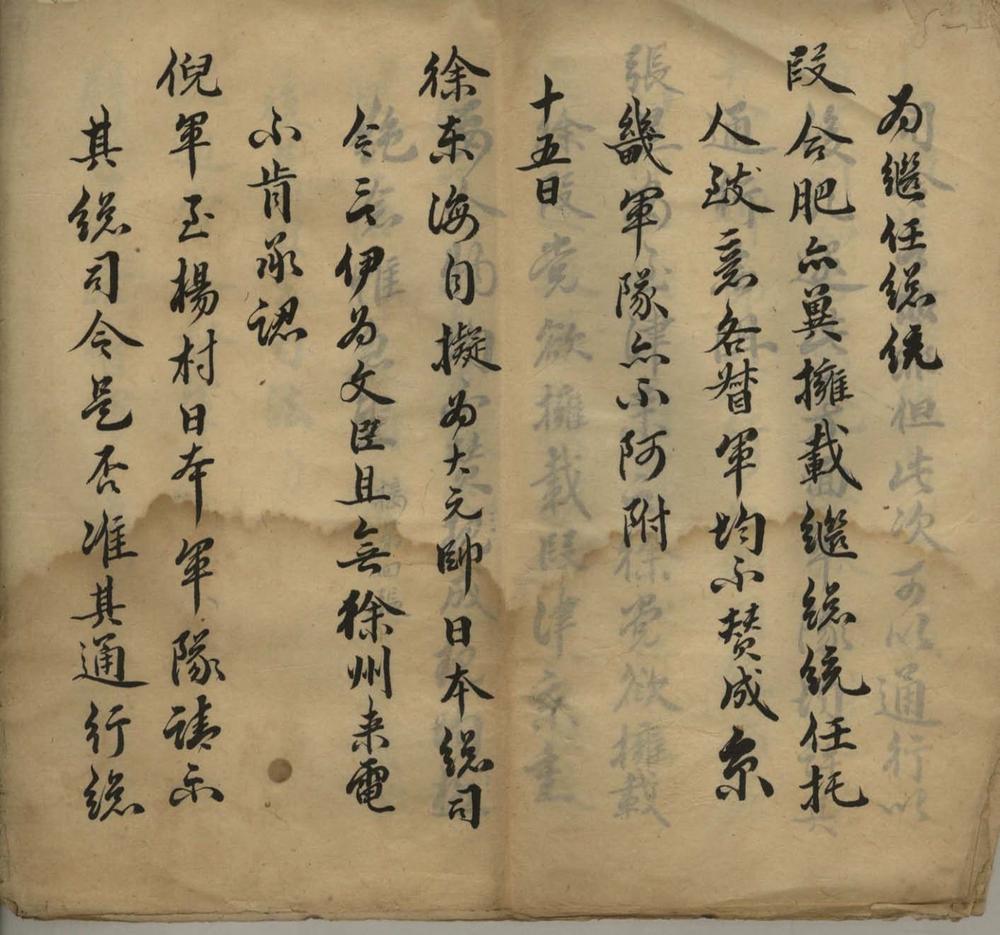 为繼任總統
段合肥亦冀擁載繼總統任托
人致意各督軍均不贊成京
畿軍隊亦不阿附
十五日
徐东海自擬为大元帥日本總司
令言伊为文臣且無徐州来電
不肯承認
倪軍至楊村日本軍隊請示
其總司令是否准其通行總